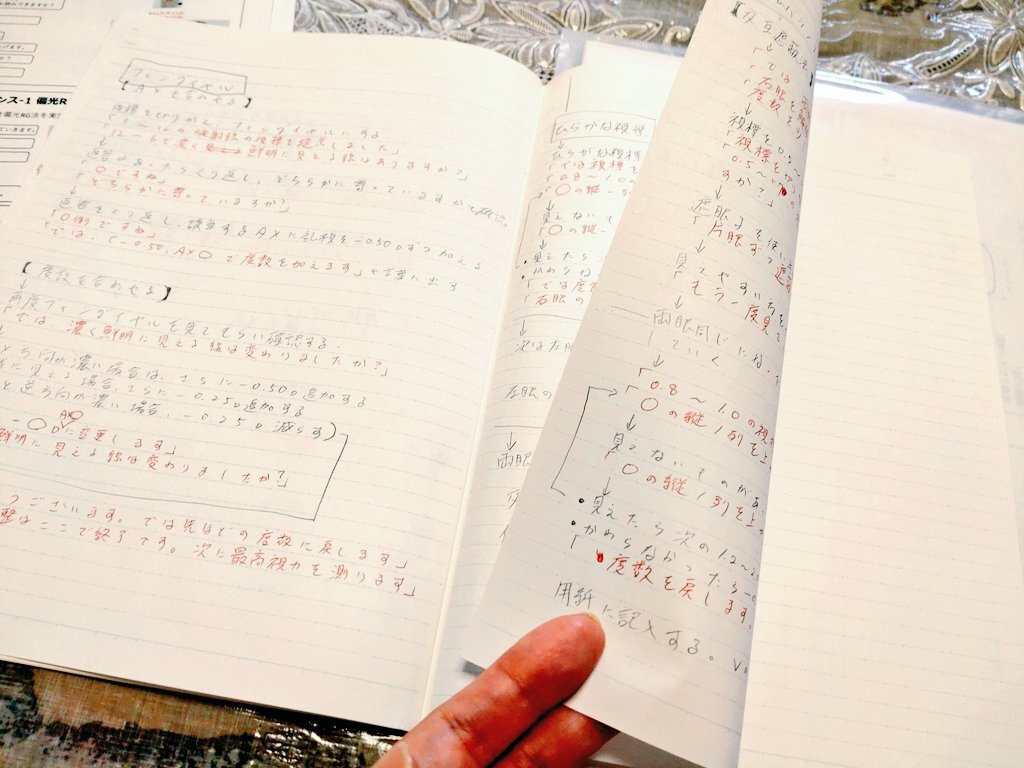 ンス-1 偏光R
は偏光RG法を実
ファンダイヤル
【Axを合わせる】
視標を切りかえ、ファンダイヤルにする
「1~12の放射線の視標を提示しました」
「12~6で濃く鮮明に見える線はありますか?」
返答があったらくり返し、どちらかに寄っていますかを確認
「〇ですね」
「どちらかに寄っていますか?」
返答をくり返し、該当するAxに乱視を-0.50Dずつ加える
「〇側ですね」
「では、C-0.50, Ax〇で度数を加えます」
【度数を合わせる】
再度ファンダイヤルを見てもらい確認する。
「では、濃く鮮明に見える線は変わりましたか?」
方向が濃い場合は、さらに-0.50D追加する
に見える場合、さらに-0.25D追加する
と逆方向が濃い場合、-0.25D減らす)
Ax〇
-〇Dに変更します」
鮮明に見える線は変わりましたか?」
うございます。では先ほどの度数に戻します」
整はここで終了です。次に最高視力を測ります」
ひらがな視視
↓
ひらがな視標
「では視標を
「0.8~1.0の
「〇の縦一列
↓
見えない
「〇の縦一
↓
・見えたら
・かわらな
「では度数
「右眼の
次は左眼
左眼の
↓
両眼
【交互遮蔽
↓
「では
右眼を
度数を
↓
視標を0.5
「視標を
0.5~
すか?」
↓
遮眼子を使
「片眼ずつ遮
↓
見えやすい方を
「もう1度見て
↓
両眼同じになっ
していく
↓
「0.8~1.0の視
〇の縦1列を上
↓
見えないものがあ
「〇の縦1列を上
↓
・見えたら次の1.2~
・かわらなかったら
「度数を戻します。
用紙に記入する。